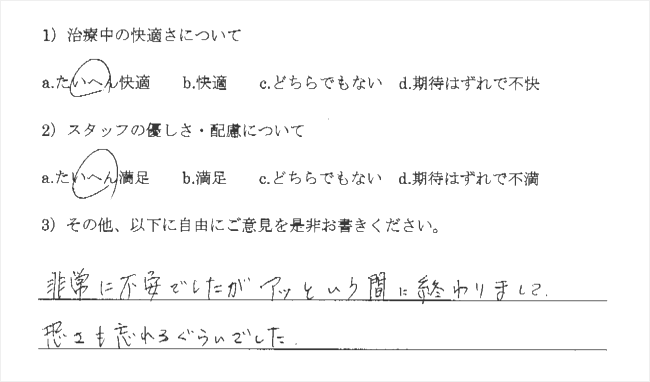 1）治療中の快適さについて
a.たいへん快適　b.快適　c.どちらでもない　d.期待はずれで不快
2）スタッフの優しさ・配慮について
a.たいへん満足　b.満足　c.どちらでもない　d.期待はずれで不満
3）その他、以下に自由にご意見を是非お書きください。
非常に不安でしたがアッという間に終わりまして.
恐さも忘れるぐらいでした.